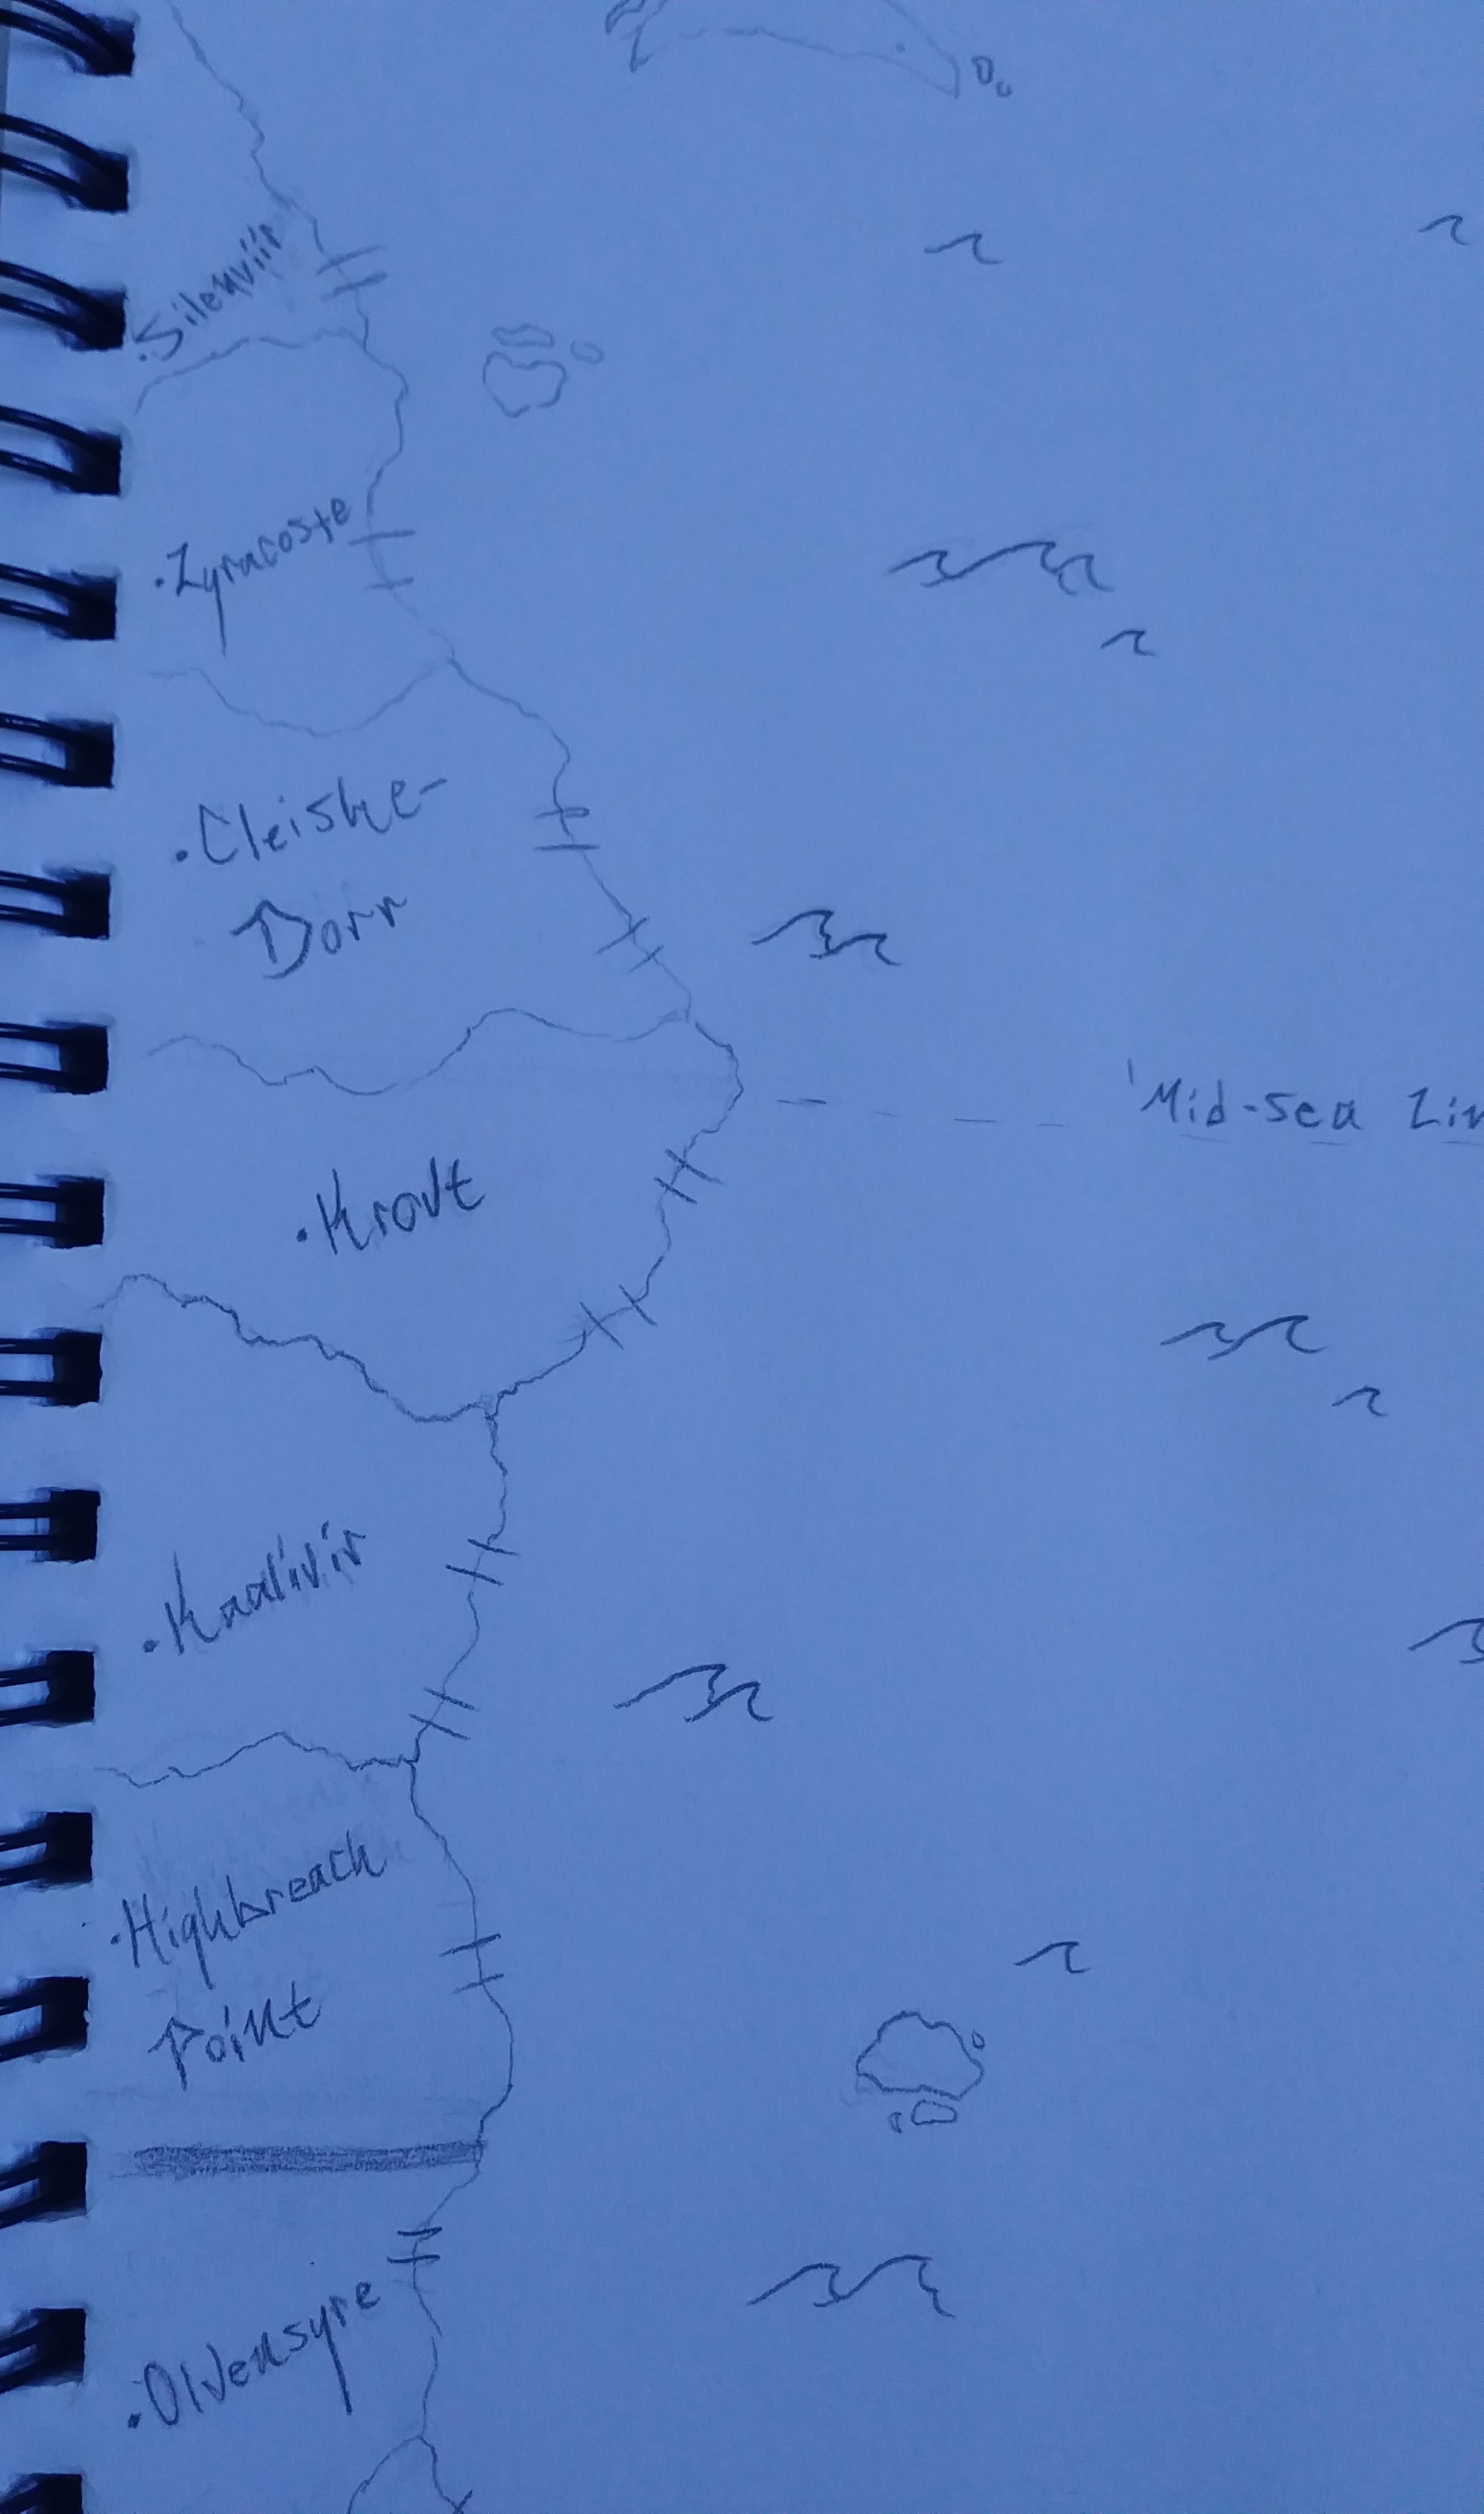 .Silenviir
.Zyracoste
.Cleishe-
Dorr
'Mid-Sea Lin
.Krovt
.Kaalivir
.Highbreach
Point
.Olvensyre